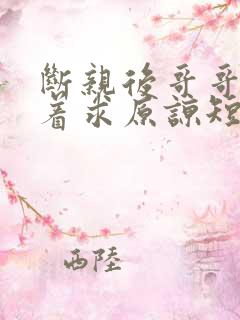 斷親後哥哥
著求原諒短
西陸